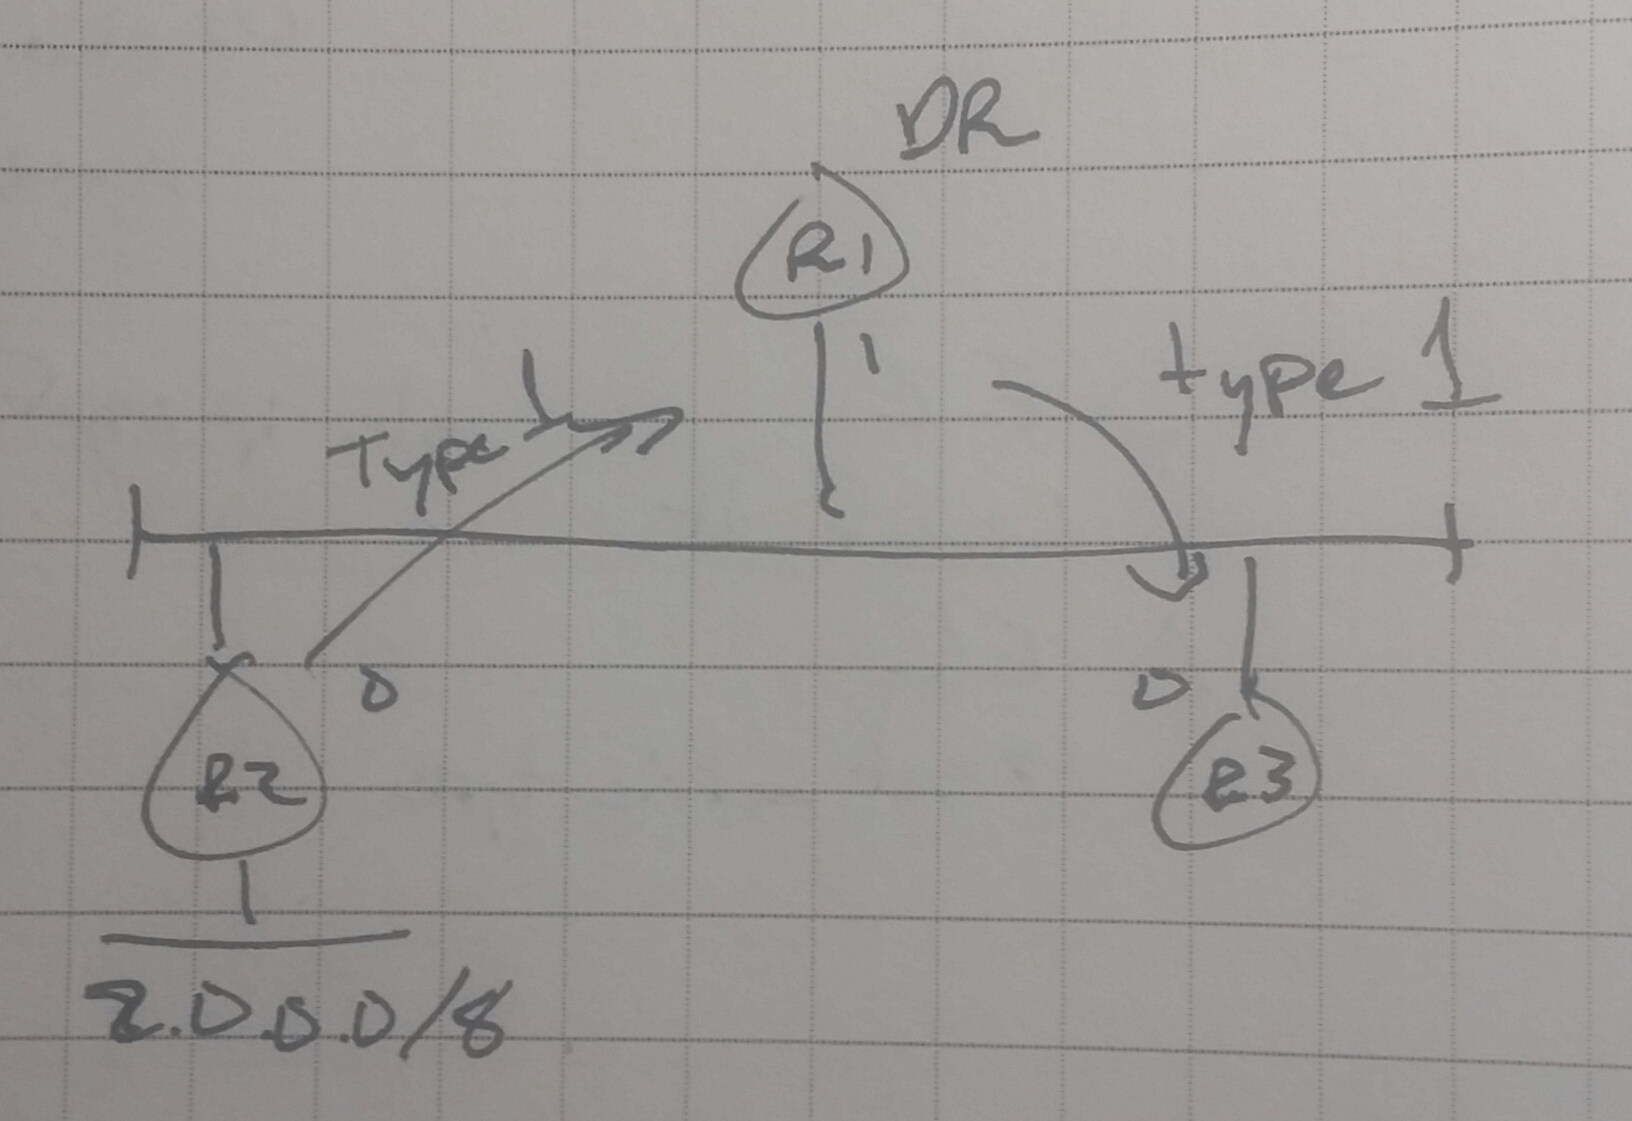 DR
R1
1
type 1
Type 1
0
0
R2
R3
2.0.0.0/8